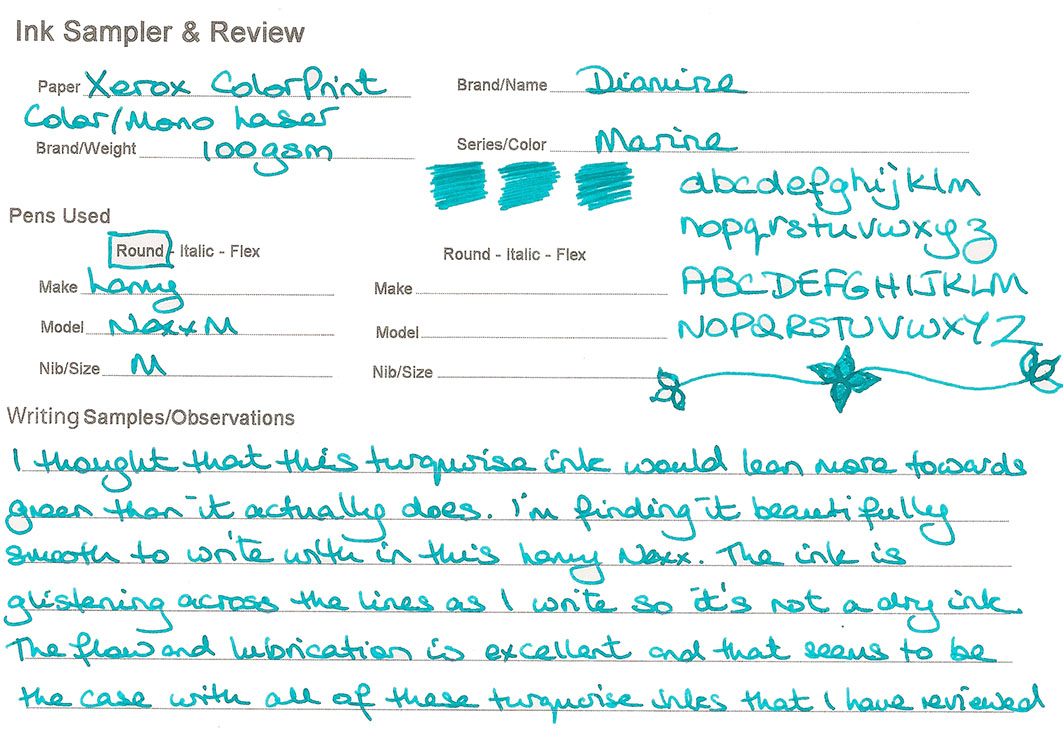 Ink Sampler & Review
Paper Xerox ColorPrint
Color/Mono Laser
Brand/Weight 100gsm
Brand/Name Diamine
Series/Color Marine
abcdefghijklm
nopqrstuvwxyz
ABCDEFGHIJKLM
NOPQRSTUVWXYZ
Pens Used
Round - Italic - Flex
Make Lamy
Model Nexx M
Nib/Size M
Round - Italic - Flex
Make
Model
Nib/Size
Writing Samples/Observations
I thought that this turquoise ink would lean more towards
green than it actually does. I'm finding it beautifully
smooth to write with in this Lamy Nexx. The ink is
glistening across the lines as I write so it's not a dry ink.
The flow and lubrication is excellent and that seems to be
the case with all of these turquoise inks that I have reviewed